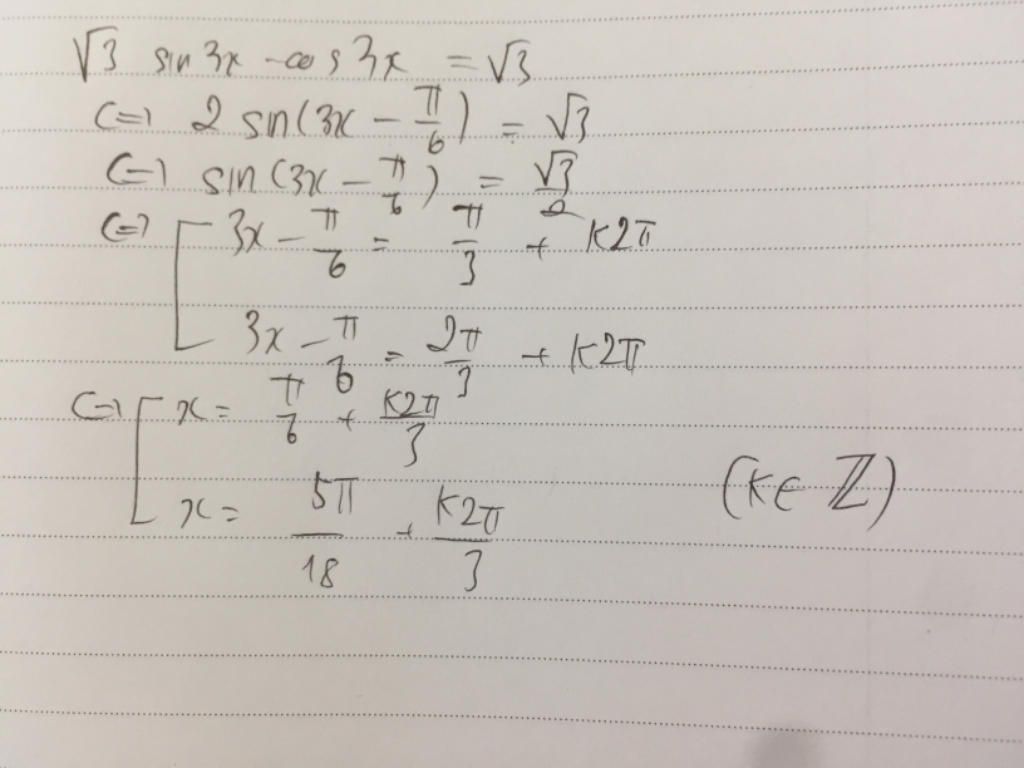 √3 sin 3x - cos 3x = √3
<=> 2 sin(3x - π/6) = √3
<=> sin(3x - π/6) = √3/2
<=> [ 3x - π/6 = π/3 + k2π
3x - π/6 = 2π/3 + k2π
<=> [ x = π/6 + k2π/3
x = 5π/18 + k2π/3 (k∈ℤ)